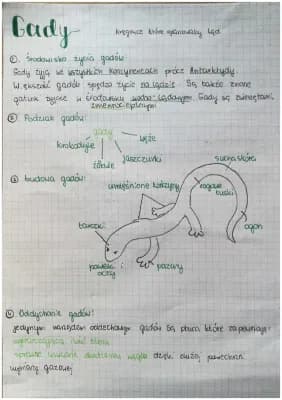 Gady
Kręgowce które opanowały ląd
① środowisko życia gadów
Gady żyją we wszystkich kontynentach prócz Antarktydy.
Większość gadów spędza życie na lądzie. Są także znane
gatunki żyjące w środowisku wodno-lądowym. Gady są zwierzętami
zmiennocieplnymi
② Podział gadów:
gady
krokodyle
węże
żółwie
jaszczurki
③ budowa gadów:
sucha skóra
umięśnione kończyny
rogowe
łuski
tarczki
ogon
powieki i
oczy
pazury
④ Oddychanie gadów:
jedynym narządem oddechowym gadów są płuca które zapewniają:
wystarczającą ilość tlenu
sprawne usuwanie dwutlenku węgla dzięki dużej powierzchni
wymiany gazowej